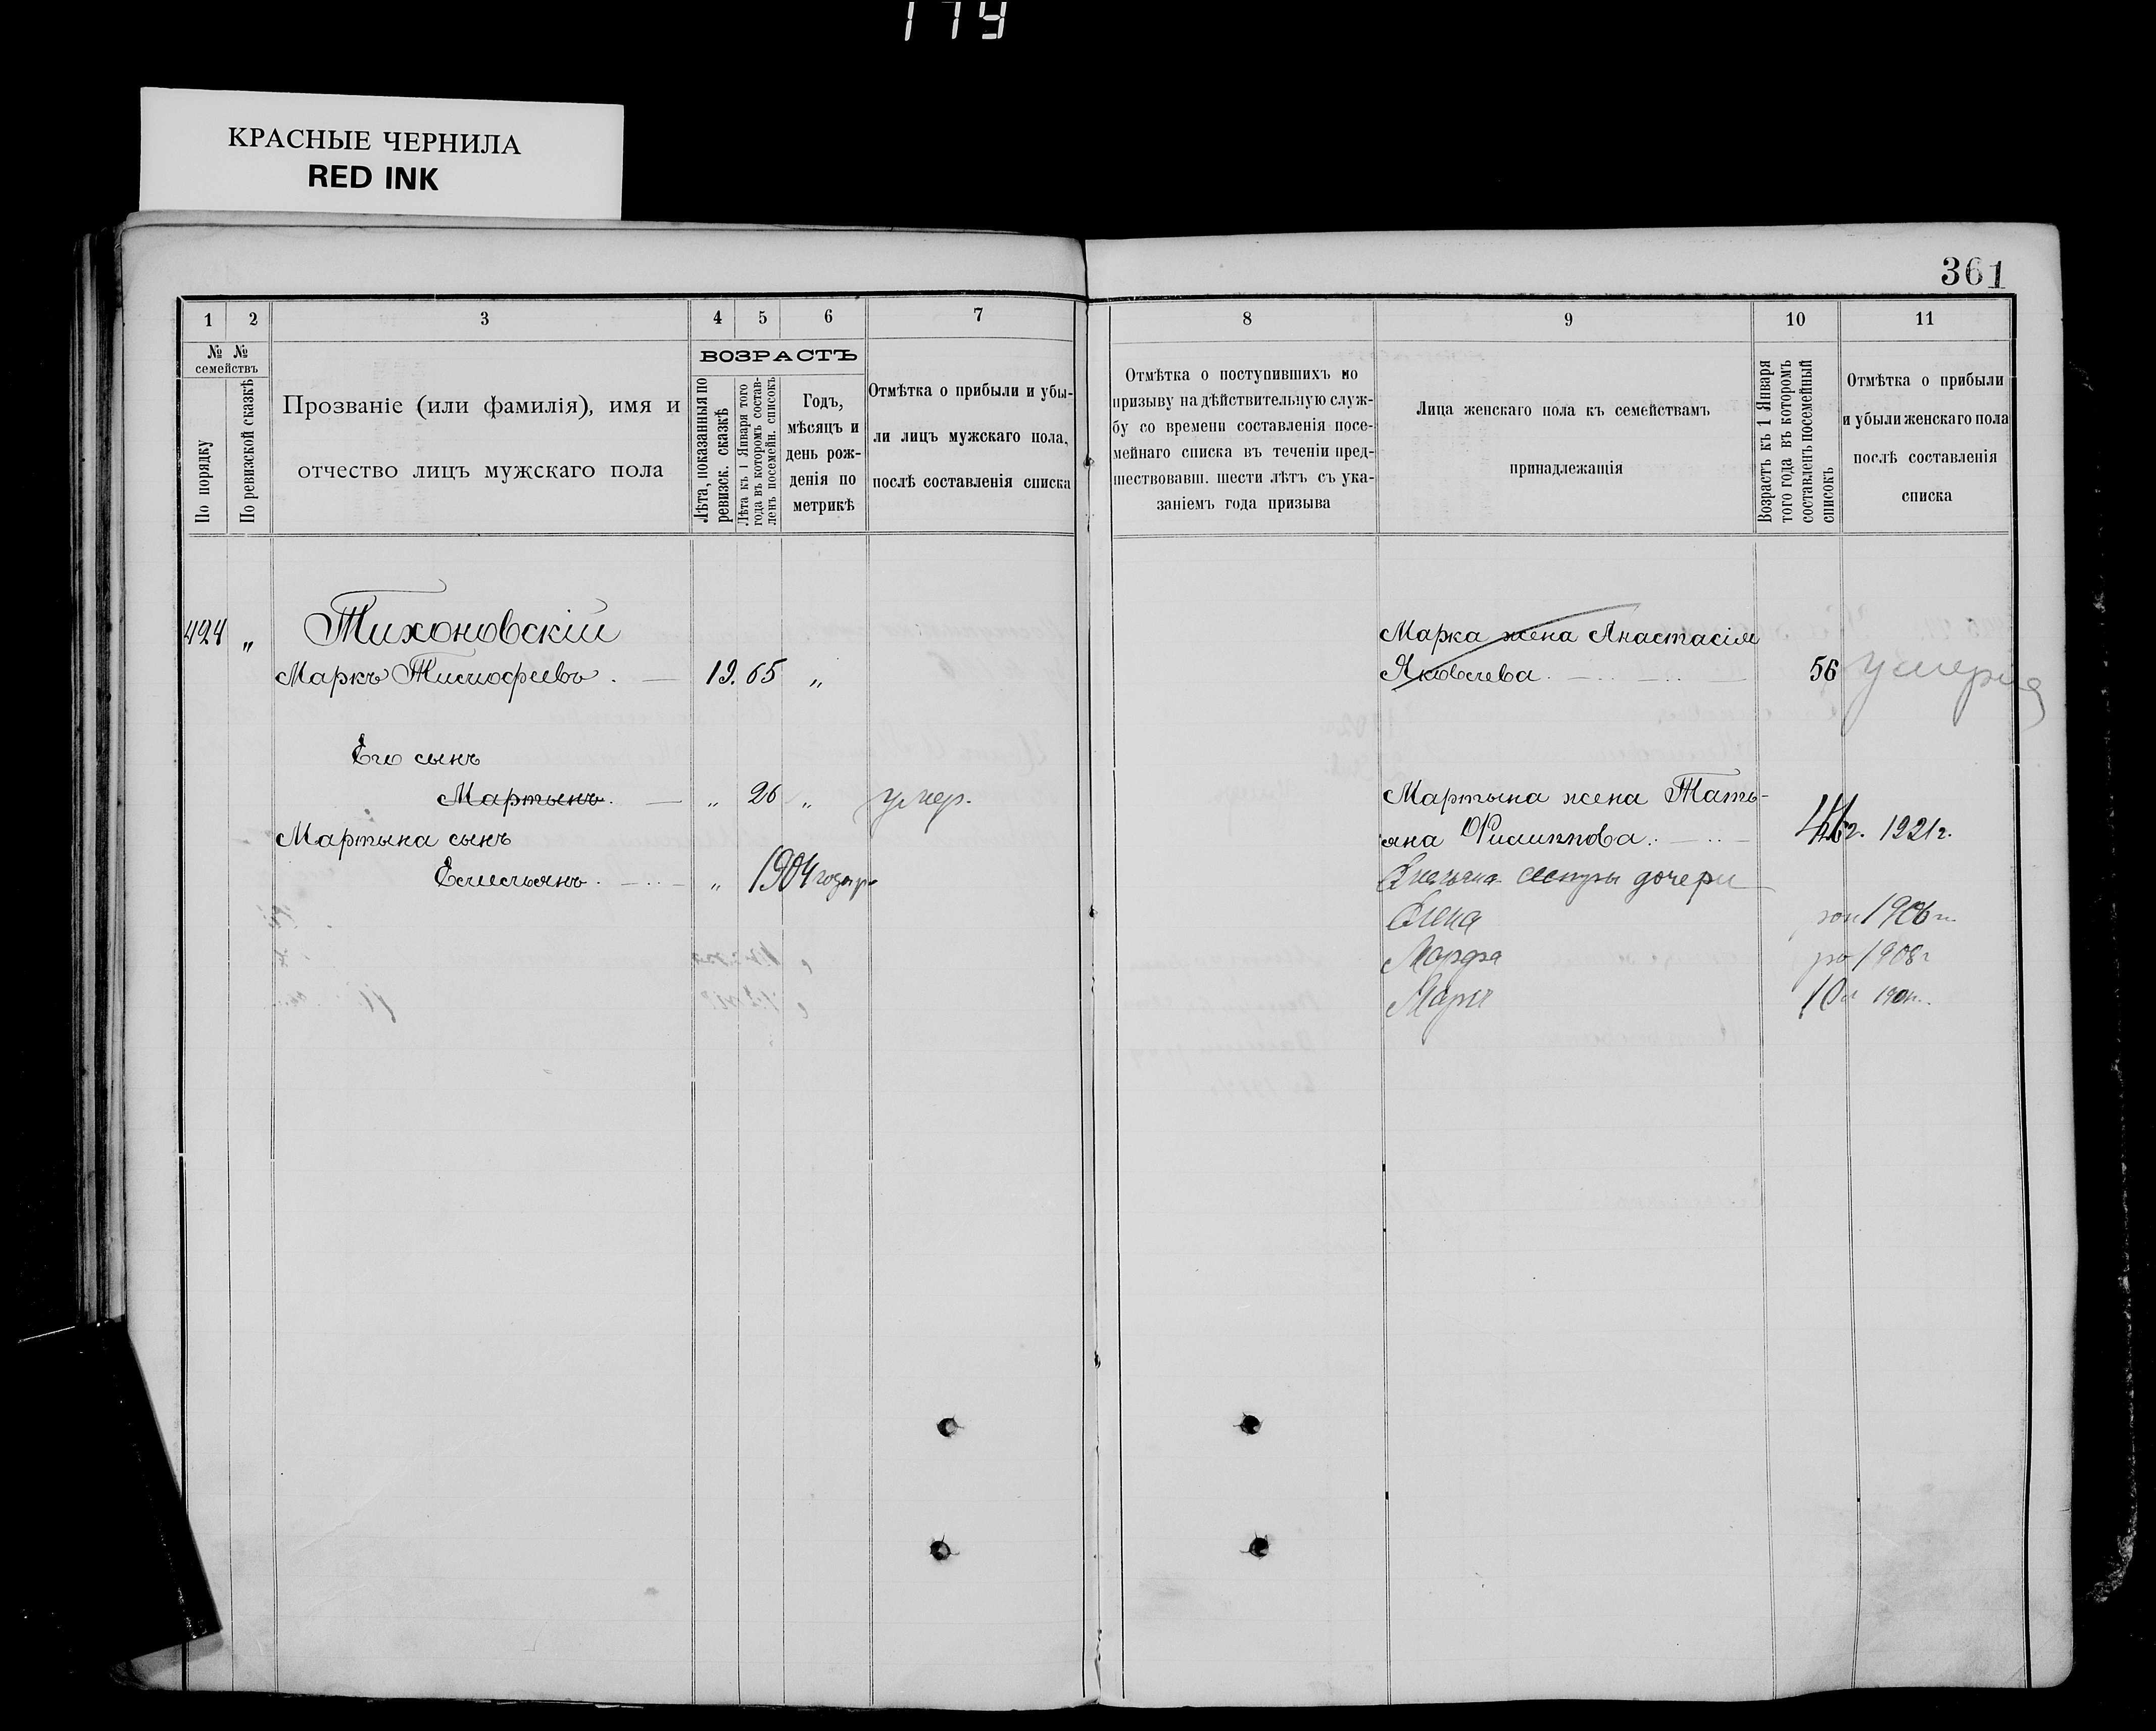 179
КРАСНЫЕ ЧЕРНИЛА
RED INK
361
1 2 3 4 5 6 7
№ № семействъ
По порядку
По ревизской сказкѣ
Прозваніе (или фамилія), имя и
отчество лицъ мужскаго пола
ВОЗРАСТЪ
Лѣта, показанныя по
ревизск. сказкѣ
Лѣта къ 1 Января того
года въ которомъ состав-
ленъ посемейн. списокъ
Годъ,
мѣсяцъ и
день рож-
денія по
метрикѣ
Отмѣтка о прибыли и убы-
ли лицъ мужскаго пола,
послѣ составленія списка
424 „ Тихоновскій
Маркъ Тимофеевъ. — 19. 65 „
Его сынъ
Мартынъ. — „ 26 „ умер.
Мартына сынъ
Емельянъ. — „ 1904 года р
8 9 10 11
Отмѣтка о поступившихъ по
призыву на дѣйствительную служ-
бу со времени составленія посе-
мейнаго списка въ теченіи пред-
шествовавш. шести лѣтъ съ ука-
заніемъ года призыва
Лица женскаго пола къ семействамъ
принадлежащія
Возрастъ къ 1 Января
того года въ которомъ
составленъ посемейный
списокъ
Отмѣтка о прибыли
и убыли женскаго пола
послѣ составленія
списка
Марка жена Анастасія
Яковлева. — 56 умерла
Мартына жена Тать-
яна Филиппова. — 1921г.
сестры дочери
Елена 1906г.
Марфа ро 1908г
Марія 10л